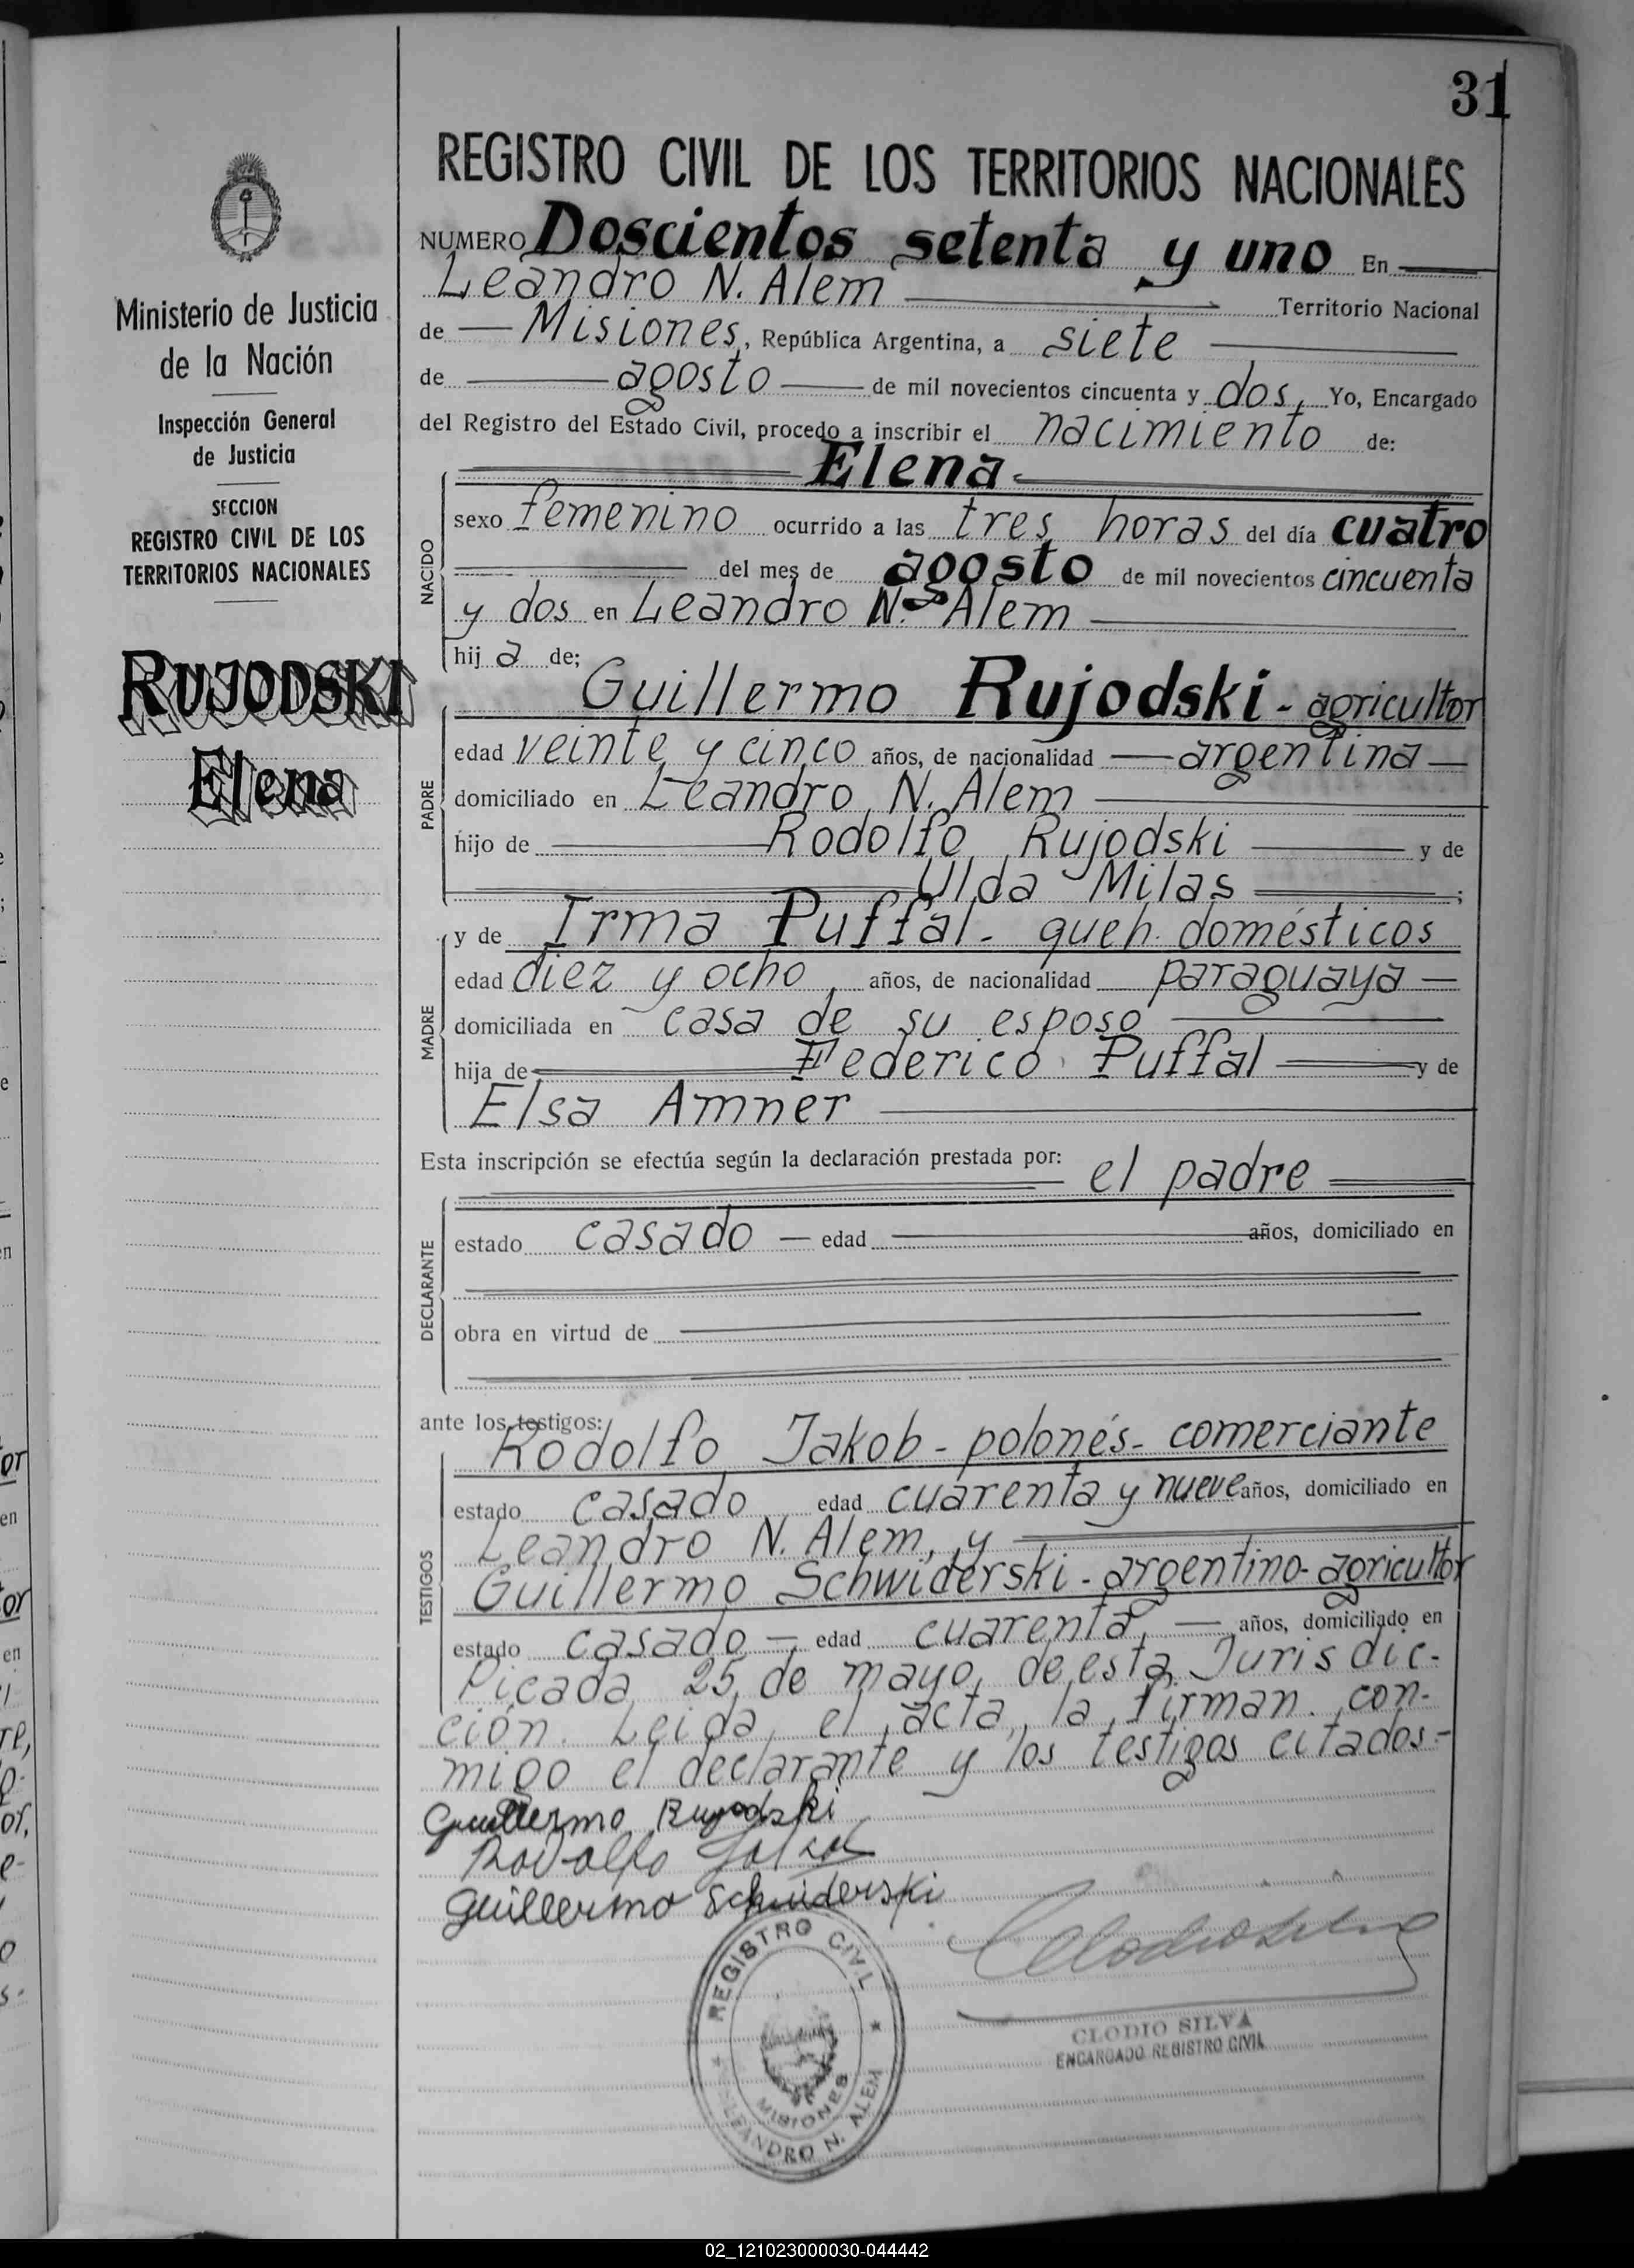 31
REGISTRO CIVIL DE LOS TERRITORIOS NACIONALES
Ministerio de Justicia
de la Nación
Inspección General
de Justicia
SECCION
REGISTRO CIVIL DE LOS
TERRITORIOS NACIONALES
RUJODSKI
Elena
NUMERO Doscientos setenta y uno En
Leandro N. Alem Territorio Nacional
de Misiones, República Argentina, a siete
de agosto de mil novecientos cincuenta y dos, Yo, Encargado
del Registro del Estado Civil, procedo a inscribir el nacimiento de:
Elena
NACIDO
sexo femenino ocurrido a las tres horas del día cuatro
del mes de agosto de mil novecientos cincuenta
y dos en Leandro N. Alem
hij a de;
Guillermo Rujodski - agricultor
PADRE
edad veinte y cinco años, de nacionalidad argentina
domiciliado en Leandro N. Alem
hijo de Rodolfo Rujodski y de
Ulda Milas ;
y de Irma Puffal - queh. domésticos
MADRE
edad diez y ocho, años, de nacionalidad paraguaya
domiciliada en casa de su esposo
hija de Federico Puffal y de
Elsa Amner
Esta inscripción se efectúa según la declaración prestada por: el padre
DECLARANTE
estado casado edad años, domiciliado en
obra en virtud de
ante los testigos:
Rodolfo Jakob - polonés - comerciante
TESTIGOS
estado casado edad cuarenta y nueve años, domiciliado en
Leandro N. Alem, y
Guillermo Schwiderski - argentino - agricultor
estado casado edad cuarenta, años, domiciliado en
Picada 25 de mayo, de esta Jurisdic-
ción. Leida el acta, la firman con-
migo el declarante y los testigos citados.-
Guillermo Rujodski
Rodolfo Jakob
Guillermo Schwiderski
REGISTRO CIVIL
MISIONES
LEANDRO N. ALEM
CLODIO SILVA
ENCARGADO REGISTRO CIVIL
02_121023000030-044442